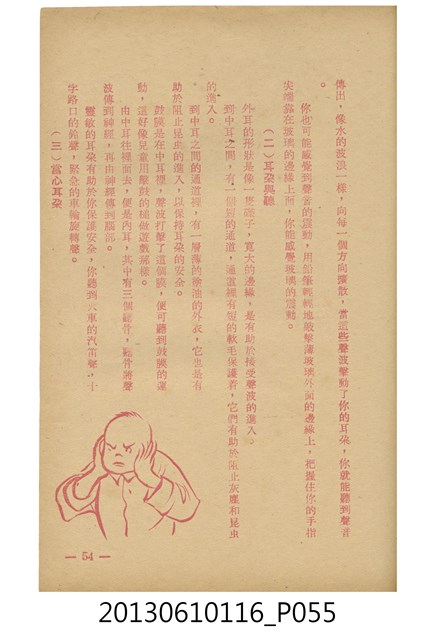 傳出，像水的波浪一樣，向每一個方向擴散，當這些聲波擊動了你的耳朵，你就能聽到聲音
。
你也可能感覺到聲音的震動，用鉛筆輕輕地敲擊薄玻璃外面的邊緣上，把握住你的手指
尖端靠在玻璃的邊緣上面，你能感覺玻璃的震動。
（二）耳朵與聽
外耳的形狀是像一隻碟子，寬大的邊緣，是有助於接受聲波的進入。
到中耳之間，有一個短的通道，通道裡有短的軟毛保護着，它們有助於阻止灰塵和昆虫
的進入。
到中耳之間的通道裡，有一層薄的塗油的外衣，它也是有
助於阻止昆虫的進入，以保持耳朵的安全。
鼓膜是在中耳裡，聲波打擊了這個膜，便可聽到鼓膜的運
動，這好像兒童用擊鼓的槌做遊戲那樣。
由中耳往裡面去，便是內耳，其中有三個聽骨，聽骨將聲
波傳到神經，再由神經傳到腦部。
靈敏的耳朵有助於你保護安全，你聽到火車的汽笛聲，十
字路口的鈴聲，緊急的車輪旋轉聲。
（三）當心耳朵
— 54 —
20130610116_P055